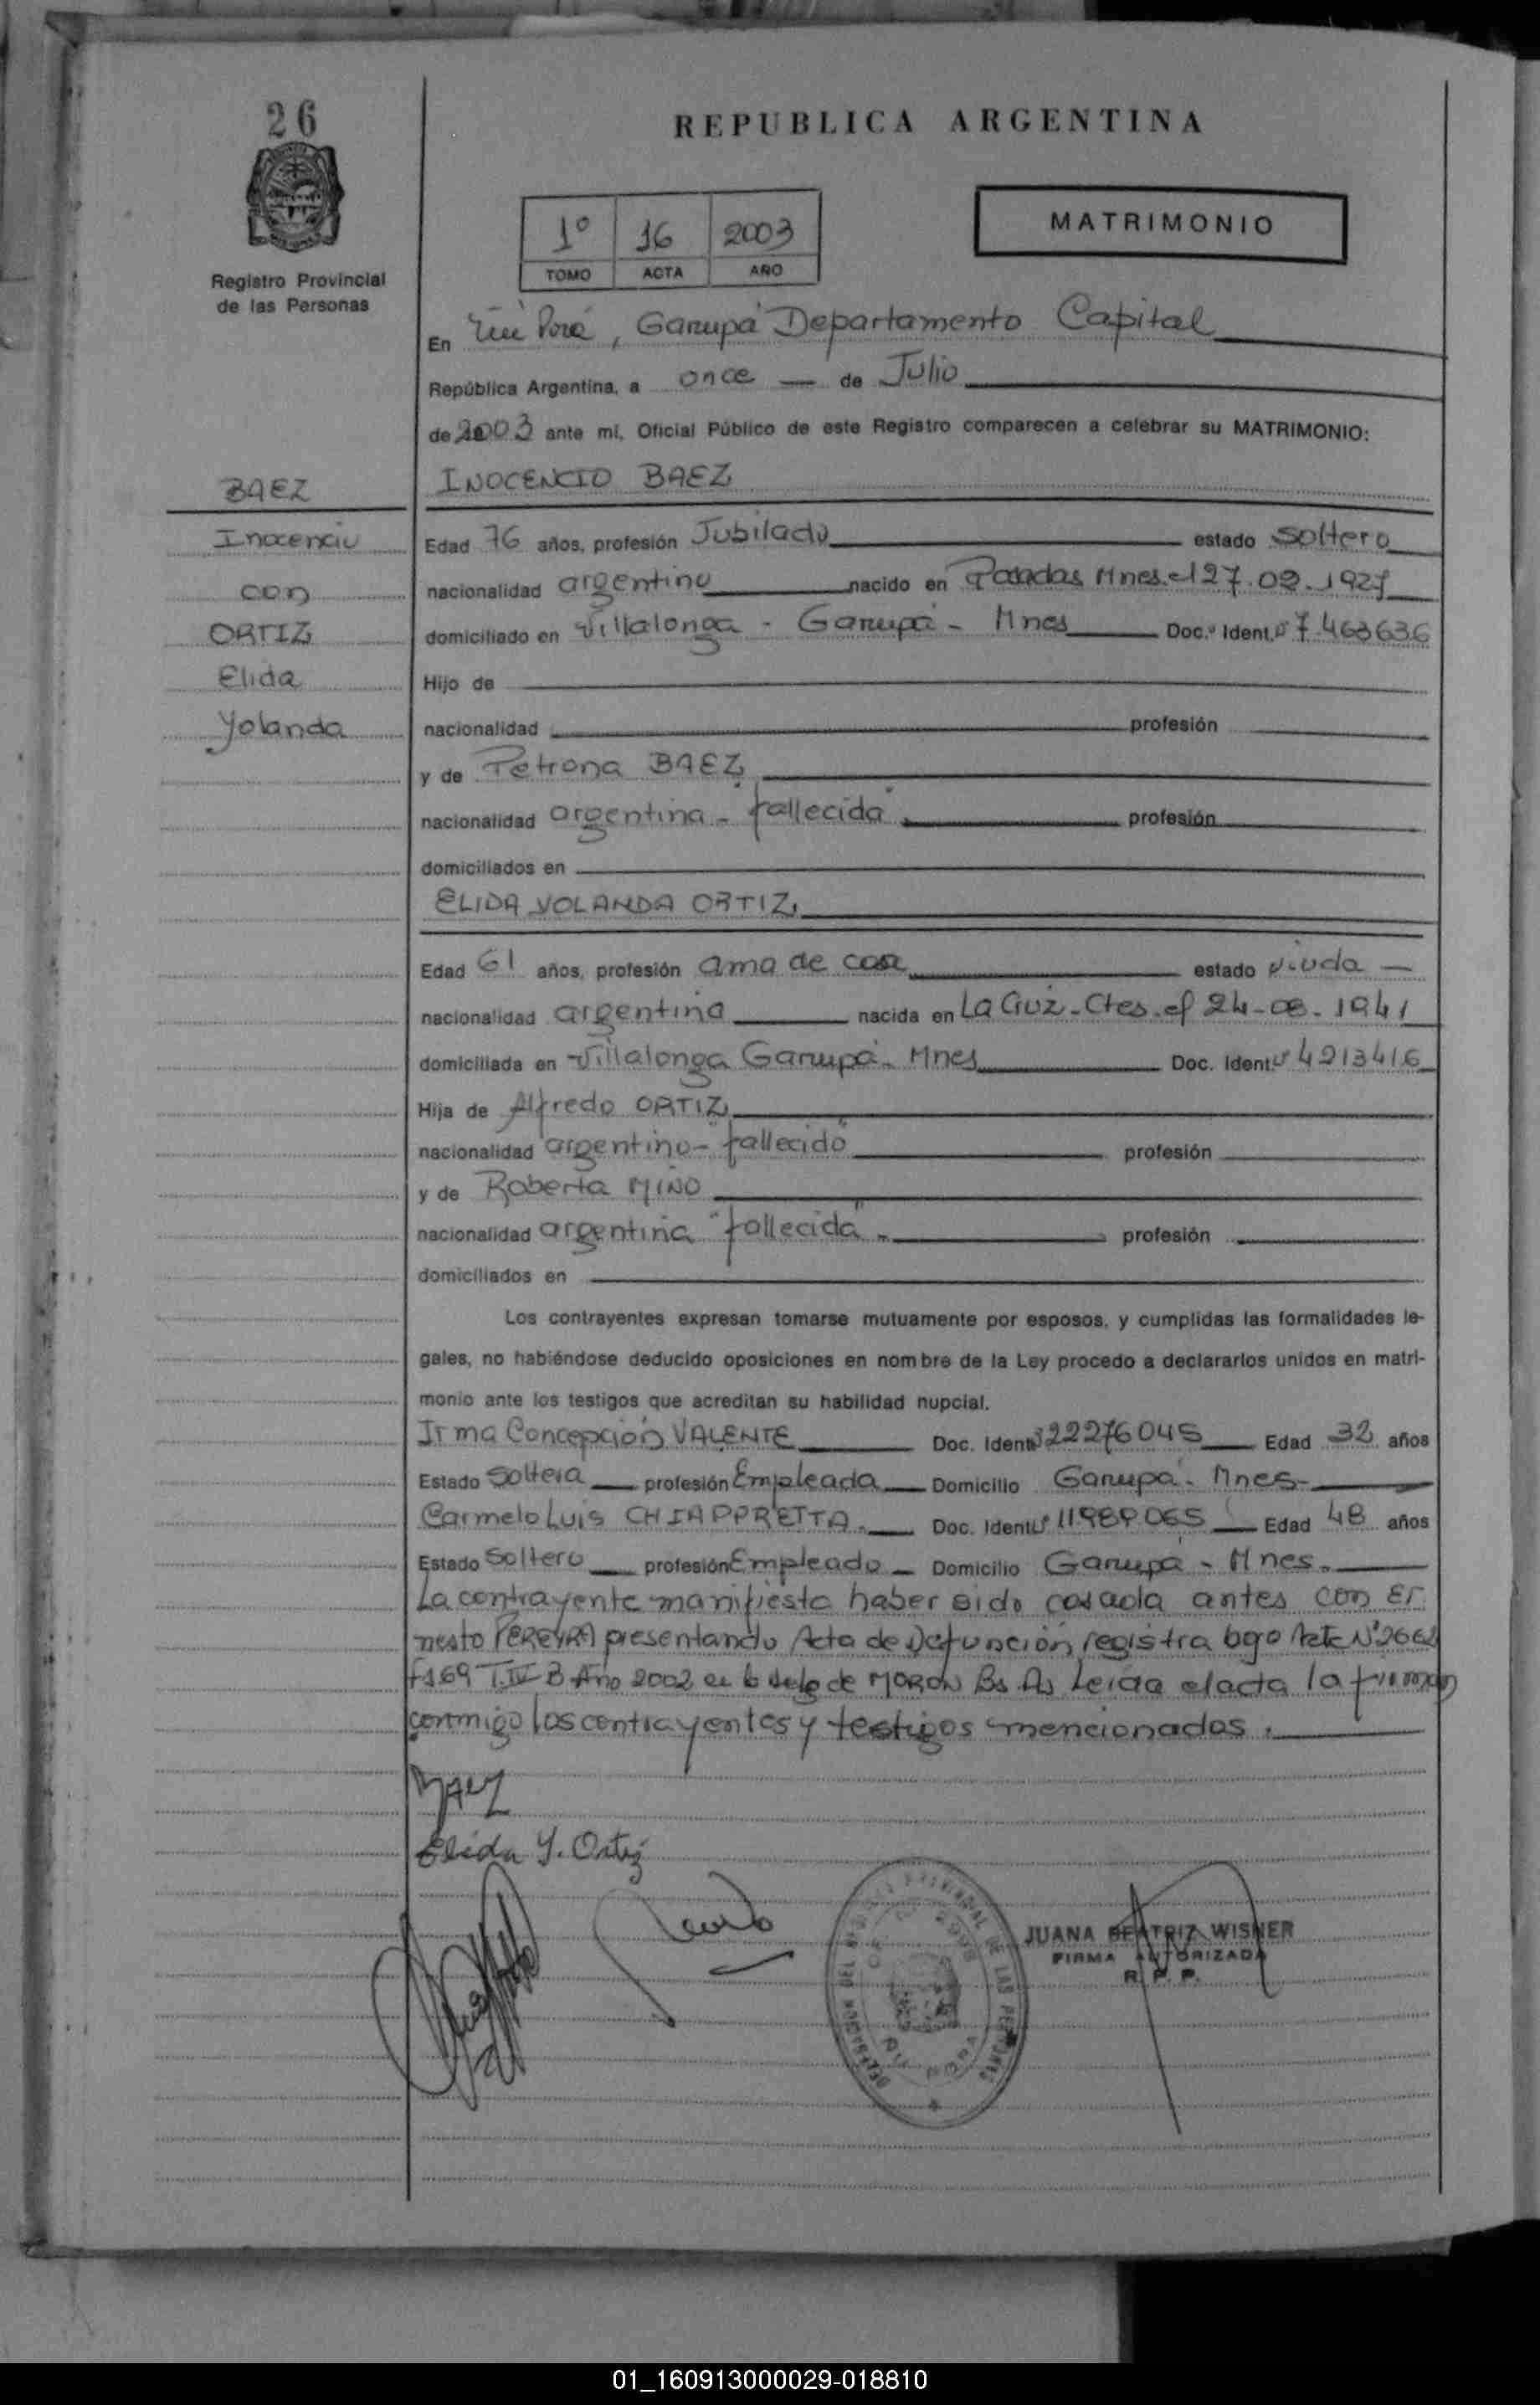 26
REPUBLICA ARGENTINA
1º 16 2003
TOMO ACTA AÑO
MATRIMONIO
Registro Provincial
de las Personas
En Porá, Garupá Departamento Capital
República Argentina, a once — de Julio
de 2003 ante mí, Oficial Público de este Registro comparecen a celebrar su MATRIMONIO:
BAEZ
INOCENCIO BAEZ
Inocencio
Edad 76 años, profesión Jubilado estado soltero
con
nacionalidad argentino nacido en Posadas Mnes. el 27.02.1927
ORTIZ
domiciliado en Villalonga - Garupá - Mnes Doc. Ident. 7.463636
Elida
Hijo de
Yolanda
nacionalidad profesión
y de Petrona BAEZ
nacionalidad argentina - fallecida" profesión
domiciliados en
ELIDA YOLANDA ORTIZ
Edad 61 años, profesión ama de casa estado viuda —
nacionalidad argentina nacida en La Cruz - Ctes. el 24-08-1941
domiciliada en Villalonga Garupá - Mnes Doc. Ident. 4213416
Hija de Alfredo ORTIZ
nacionalidad argentino - "fallecido" profesión
y de Roberta MIÑO
nacionalidad argentina "fallecida" - profesión
domiciliados en
Los contrayentes expresan tomarse mutuamente por esposos, y cumplidas las formalidades le-
gales, no habiéndose deducido oposiciones en nombre de la Ley procedo a declararlos unidos en matri-
monio ante los testigos que acreditan su habilidad nupcial.
Irma Concepción VALENTE Doc. Ident. 22276045 Edad 32 años
Estado Soltera profesión Empleada Domicilio Garupá - Mnes -
Carmelo Luis CHIAPPRETTA. Doc. Ident. 11989065 Edad 48 años
Estado Soltero profesión Empleado Domicilio Garupá - Mnes.
La contrayente manifiesta haber sido casada antes con Er
nesto PEREYRA presentando Acta de Defunción registra bajo Acta Nº 2662
Fº 169 T. IV B Año 2002 de MORON Bs As Leída el acta la firman
conmigo los contrayentes y testigos mencionados.
BAEZ
Elida Y. Ortiz
JUANA BEATRIZ WISNER
FIRMA AUTORIZADA
R. P. P.
01_160913000029-018810